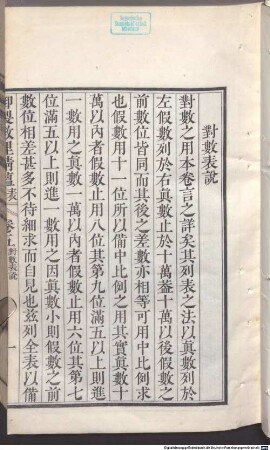 對數表說
對數之用本卷言之詳矣其列表之法以真數列於
左假數列於右真數止於十萬蓋十萬以後假數之
前數位皆同而其後之差數亦相等可用中比例求
也假數用十一位所以備中比例之用其實真數十
萬以內者假數止用八位其第九位滿五以上則進
一數用之真數一萬以內者假數止用六位其第七
位滿五以上則進一數用之因真數小則假數之前
數位相差甚多不待細求而自見也茲列全表以備
卷五對數表說 一